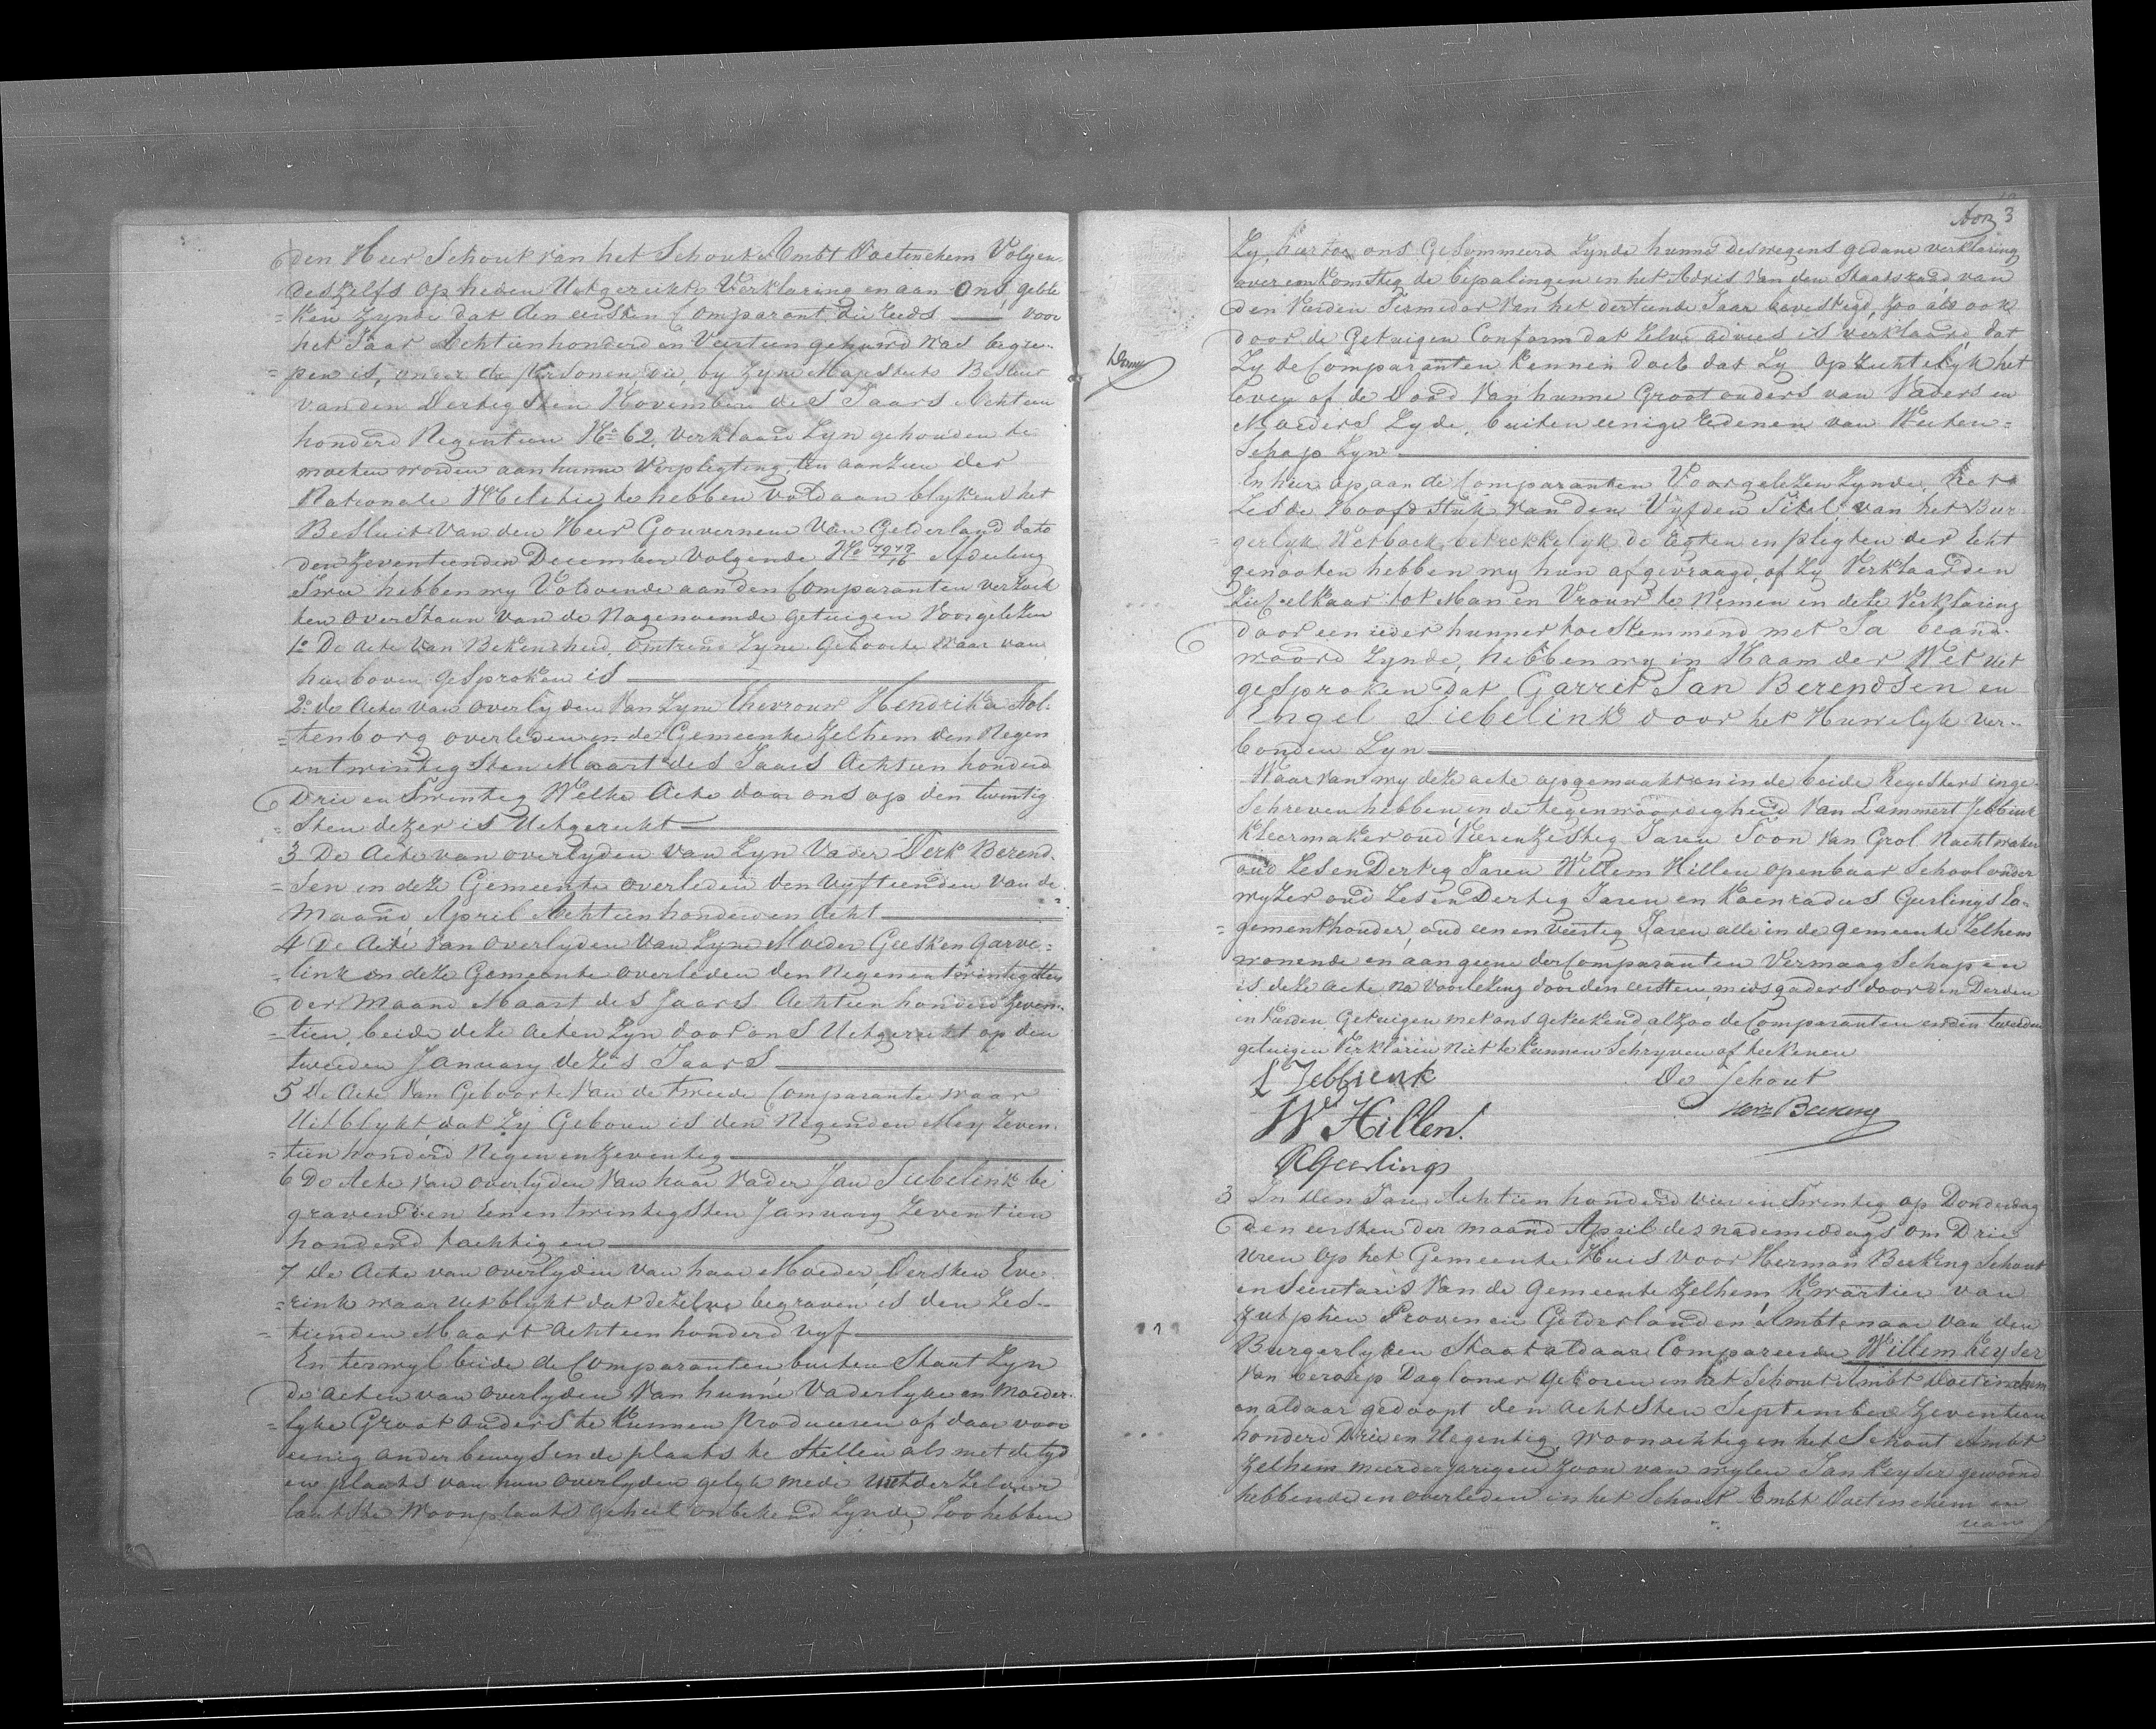 den Heer Schout van het Schout Ambt Doetinchem Volgen
deszelfs op heden Uitgereikte Verklaring en aan ons geble
= ken Zynde dat den eersten Comparant die reeds — voor
het Jaar Achtienhonderd en Veertien gehuwd was begree
= pen is, onder de Personen die, by Zyne Majesteits Besluit
van den Dertigsten November des Jaars Achtien
honderd Negentien No 62, verklaard Zyn gehouden te
moeten worden aan hunne Verpligting, ten aanzien der
Nationale Melitie te hebben voldaan blykens het
Besluit van den Heer Gouverneur van Gelderland dato
den Zeventienden December Volgende No Afdeeling
Twee hebben wy Voldoende aan den Comparanten verzoek
ten Overstaan van de Nagenoemde getuigen Voorgelezen
1o De Acte van Bekendheid, Omtrend Zyne Geboorte Waar van
hier boven gesproken is
2o de Acte van overlyden van Zyne Ehevrouw Hendrika Hol
= tenborg overleden in de Gemeente Zelhem den Negen
entwintigsten Maart des Jaars Achtien honderd
Drie en Twentig Welke Acte door ons op den twintig
= sten dezer is Uitgereikt
3 De Acte van overlyden van Zyn Vader Derk Berend
= sen in deze Gemeente overleden den Vyftienden van de
maand April Achtienhonderd en Acht
4 De Acte van overlyden van Zyne Moeder Geesken Garve
= link in deze Gemeente overleden den Negenentwintigsten
der Maand Maart des Jaars Achtien honderd Zeven
= tien, beide deze Acten Zyn door ons Uitgereikt op den
tweeden January dezes Jaars
5 De Acte van Geboorte van de tweede Comparante waar
Uit blykt, dat Zy Geboren is den Negenden Mey Zeven
= tien honderd Negen en Zeventig
6 De Acte van overlyden van haar Vader Jan Siebelink be
graven den Eenentwintigsten January Zeventien
honderd tachtig en
7 De Acte van overlyden van haar Moeder, Dersken Eve
= rink waar uit blykt dat dezelve begraven is den Zes
= tienden Maart Achtien honderd Vyf
En terwyl beide de Comparanten buiten Staat Zyn
de acten van overlyden van hunne Vaderlyke en Moeder
= lyke Groot Ouders te Kunnen Produceren of daar voor
eenig ander bewys in de plaats te Stellen als met de tyd
en plaats van hun Overlyden gelyk mede met derzelver
laatste Woonplaats geheel onbekend Zynde, Zoo hebben
3
Zy, hiertoe ons Gesommeerd Zynde hunne deswegens gedane verklaring
overeenkomstig de bepalingen in het Advis van den Staatsraad van
den Vierden Termedor van het dertiende Jaar bevestigd, zoo als ook
door de Getuigen Conform dat Zelve advies is verklaard, dat
Zy de Comparanten kennen doch dat Zy opzichtelyk het
leven of de dood van hunne Grootouders van Vaders en
Moeders Zyde, buiten eenige Redenen van Weten =
Schap Zyn
En hier op aan de Comparanten Voorgelezen Zynde, het
Zesde Hoofdstuk van den Vyfden Titel van het Bur
= gerlyk Wetboek, betrekkelyk de regten en pligten der Echt
genooten hebben wy hun afgevraagd, of Zy Verklaarden
Zich elkaar tot Man en Vrouw te Nemen en deze Verklaring
door een ieder hunner toestemmend met Ja beand
woord Zynde, hebben wy in Naam der Wet uit
gesproken dat Garret Jan Berendsen en
Engel Siebelink door het Huwelyk ver
bonden Zyn
Waar van wy deze acte opgemaakt en in de beide Registers inge
schreven hebben, in de tegenwoordigheid van Lammert Jebbink
Kleermaker oud Vierenzestig Jaren Toon van Grol Nachtwaker
oud Zes en Dertig Jaren Willem Hillen Openbaar Schoolonder
wyzer oud Zes en Dertig Jaren en Koenradus Geerlings Lo
= gementhouder, oud een en Veertig Jaren alle in de Gemeente Zelhem
wonende en aan geene der Comparanten Vermaagschapen
is deze Acte na Voorlezing door den eersten, midsgaders door den Derden
en Vierden Getuigen met ons getekend, alzoo de Comparanten en den tweeden
getuigen Verklaren niet te kunnen Schryven of teekenen
L Jebbienk De Schout
W Hillen. Herm Beeking
K Geerlings
3 In den Jare Achtien honderd vier en Twentig op Donderdag
den eersten der maand April des nademiddags om Drie
Uren op het Gemeente Huis voor Herman Beeking Schout
en Secretaris van de Gemeente Zelhem, Kwartier van
Zutphen Provencie Gelderland en Ambtenaar van den
Burgerlyken Staat aldaar Compareerde Willem Keyser
van beroep Dagloner geboren in het Schout Ambt Doetinchem
en aldaar gedoopt den Achtsten September Zeventien
honderd Drie en Negentig, woonachtig in het Schout Ambt
Zelhem meerderjarigen Zoon van wylen Jan Keyser gewoond
hebbende en overleden in het Schout Ambt Doetinchem en
van